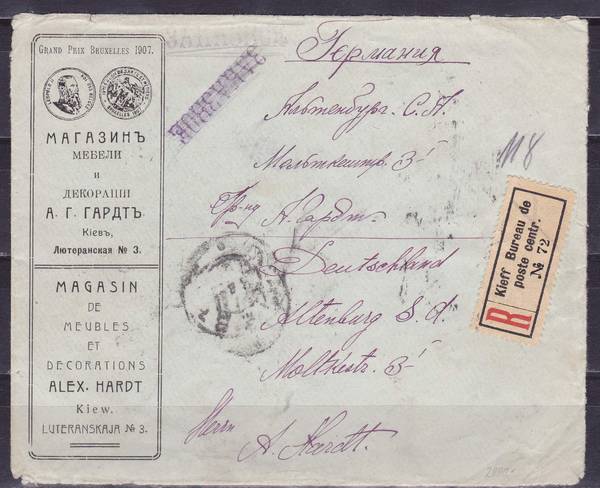 GRAND PRIX BRUXELLES 1907.
МАГАЗИНЪ
МЕБЕЛИ
И
ДЕКОРАЦІИ
А. Г. ГАРДТЪ
Кіевъ,
Лютеранская № 3.
MAGASIN
DE
MEUBLES
ET
DECORATIONS
ALEX. HARDT
Kiew.
LUTERANSKAJA № 3.
ЗАКАЗНОЕ
ЗАКАЗНОЕ
Германия
Альтенбург С. А.
Мольткештр. 3
118
Гр-ну А. Гардт.
Deutschland
Altenburg S. A.
Moltkestr. 3
Herrn
A. Hardt.
Kieff Bureau de
poste centr.
№ 72
R